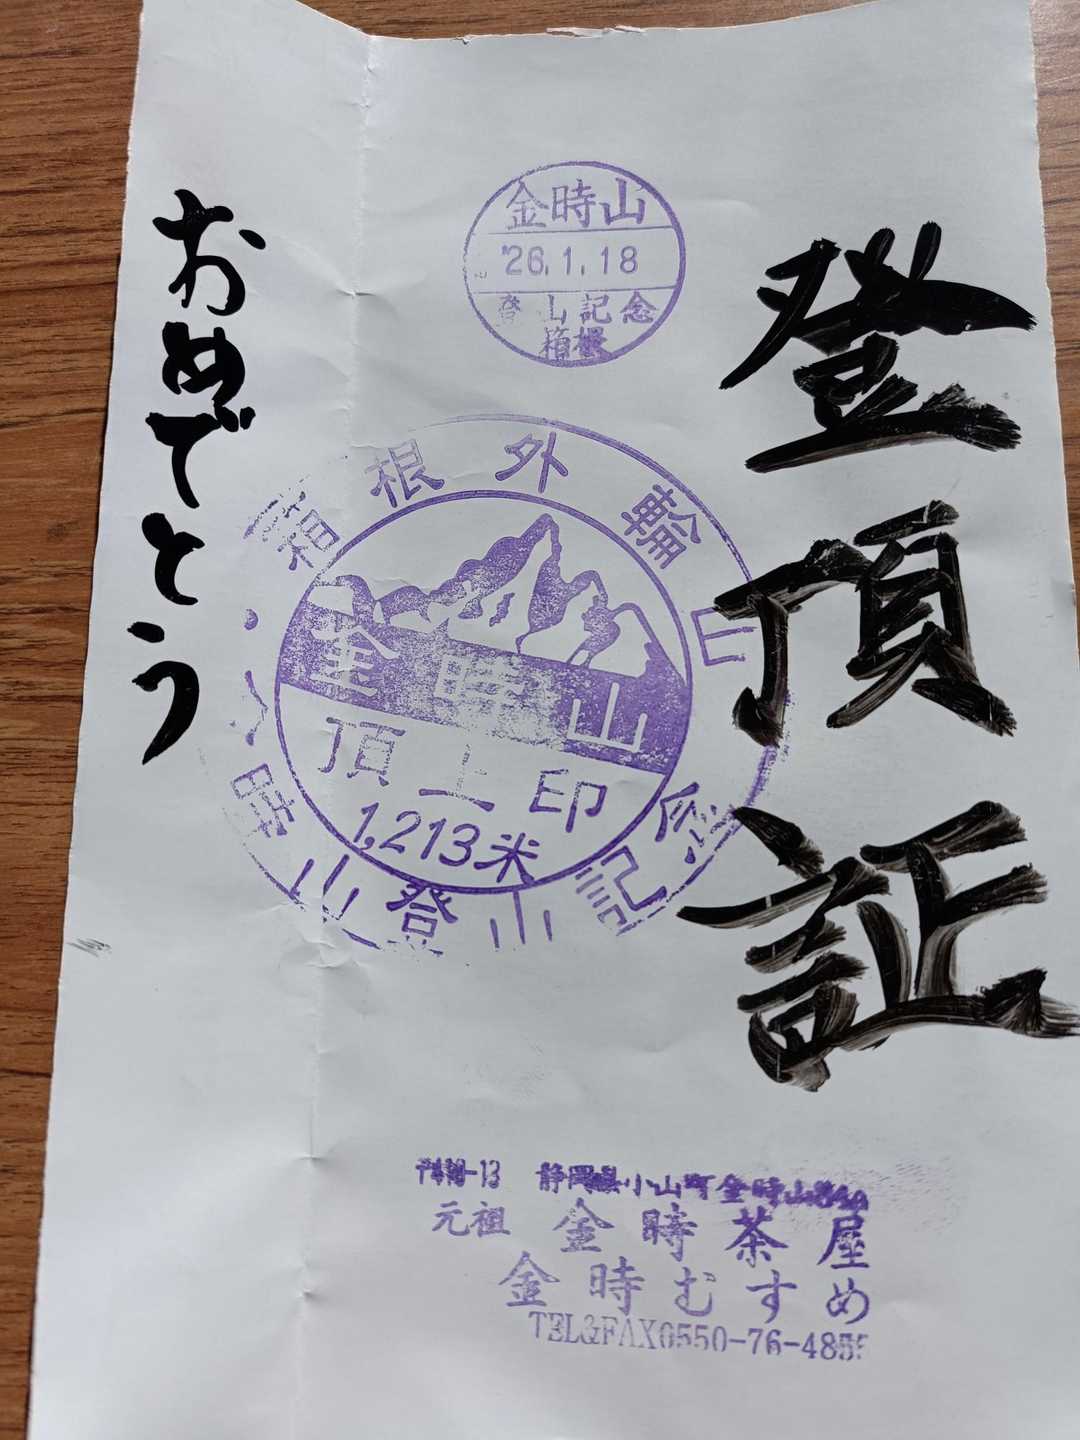 登頂証
おめでとう
金時山
'26.1.18
登山記念
箱根
箱根外輪山
金時山
頂上印
1,213米
屏山登山記念
静岡県小山町金時山頂
元祖 金時茶屋
金時むすめ
TEL&FAX0550-76-4855